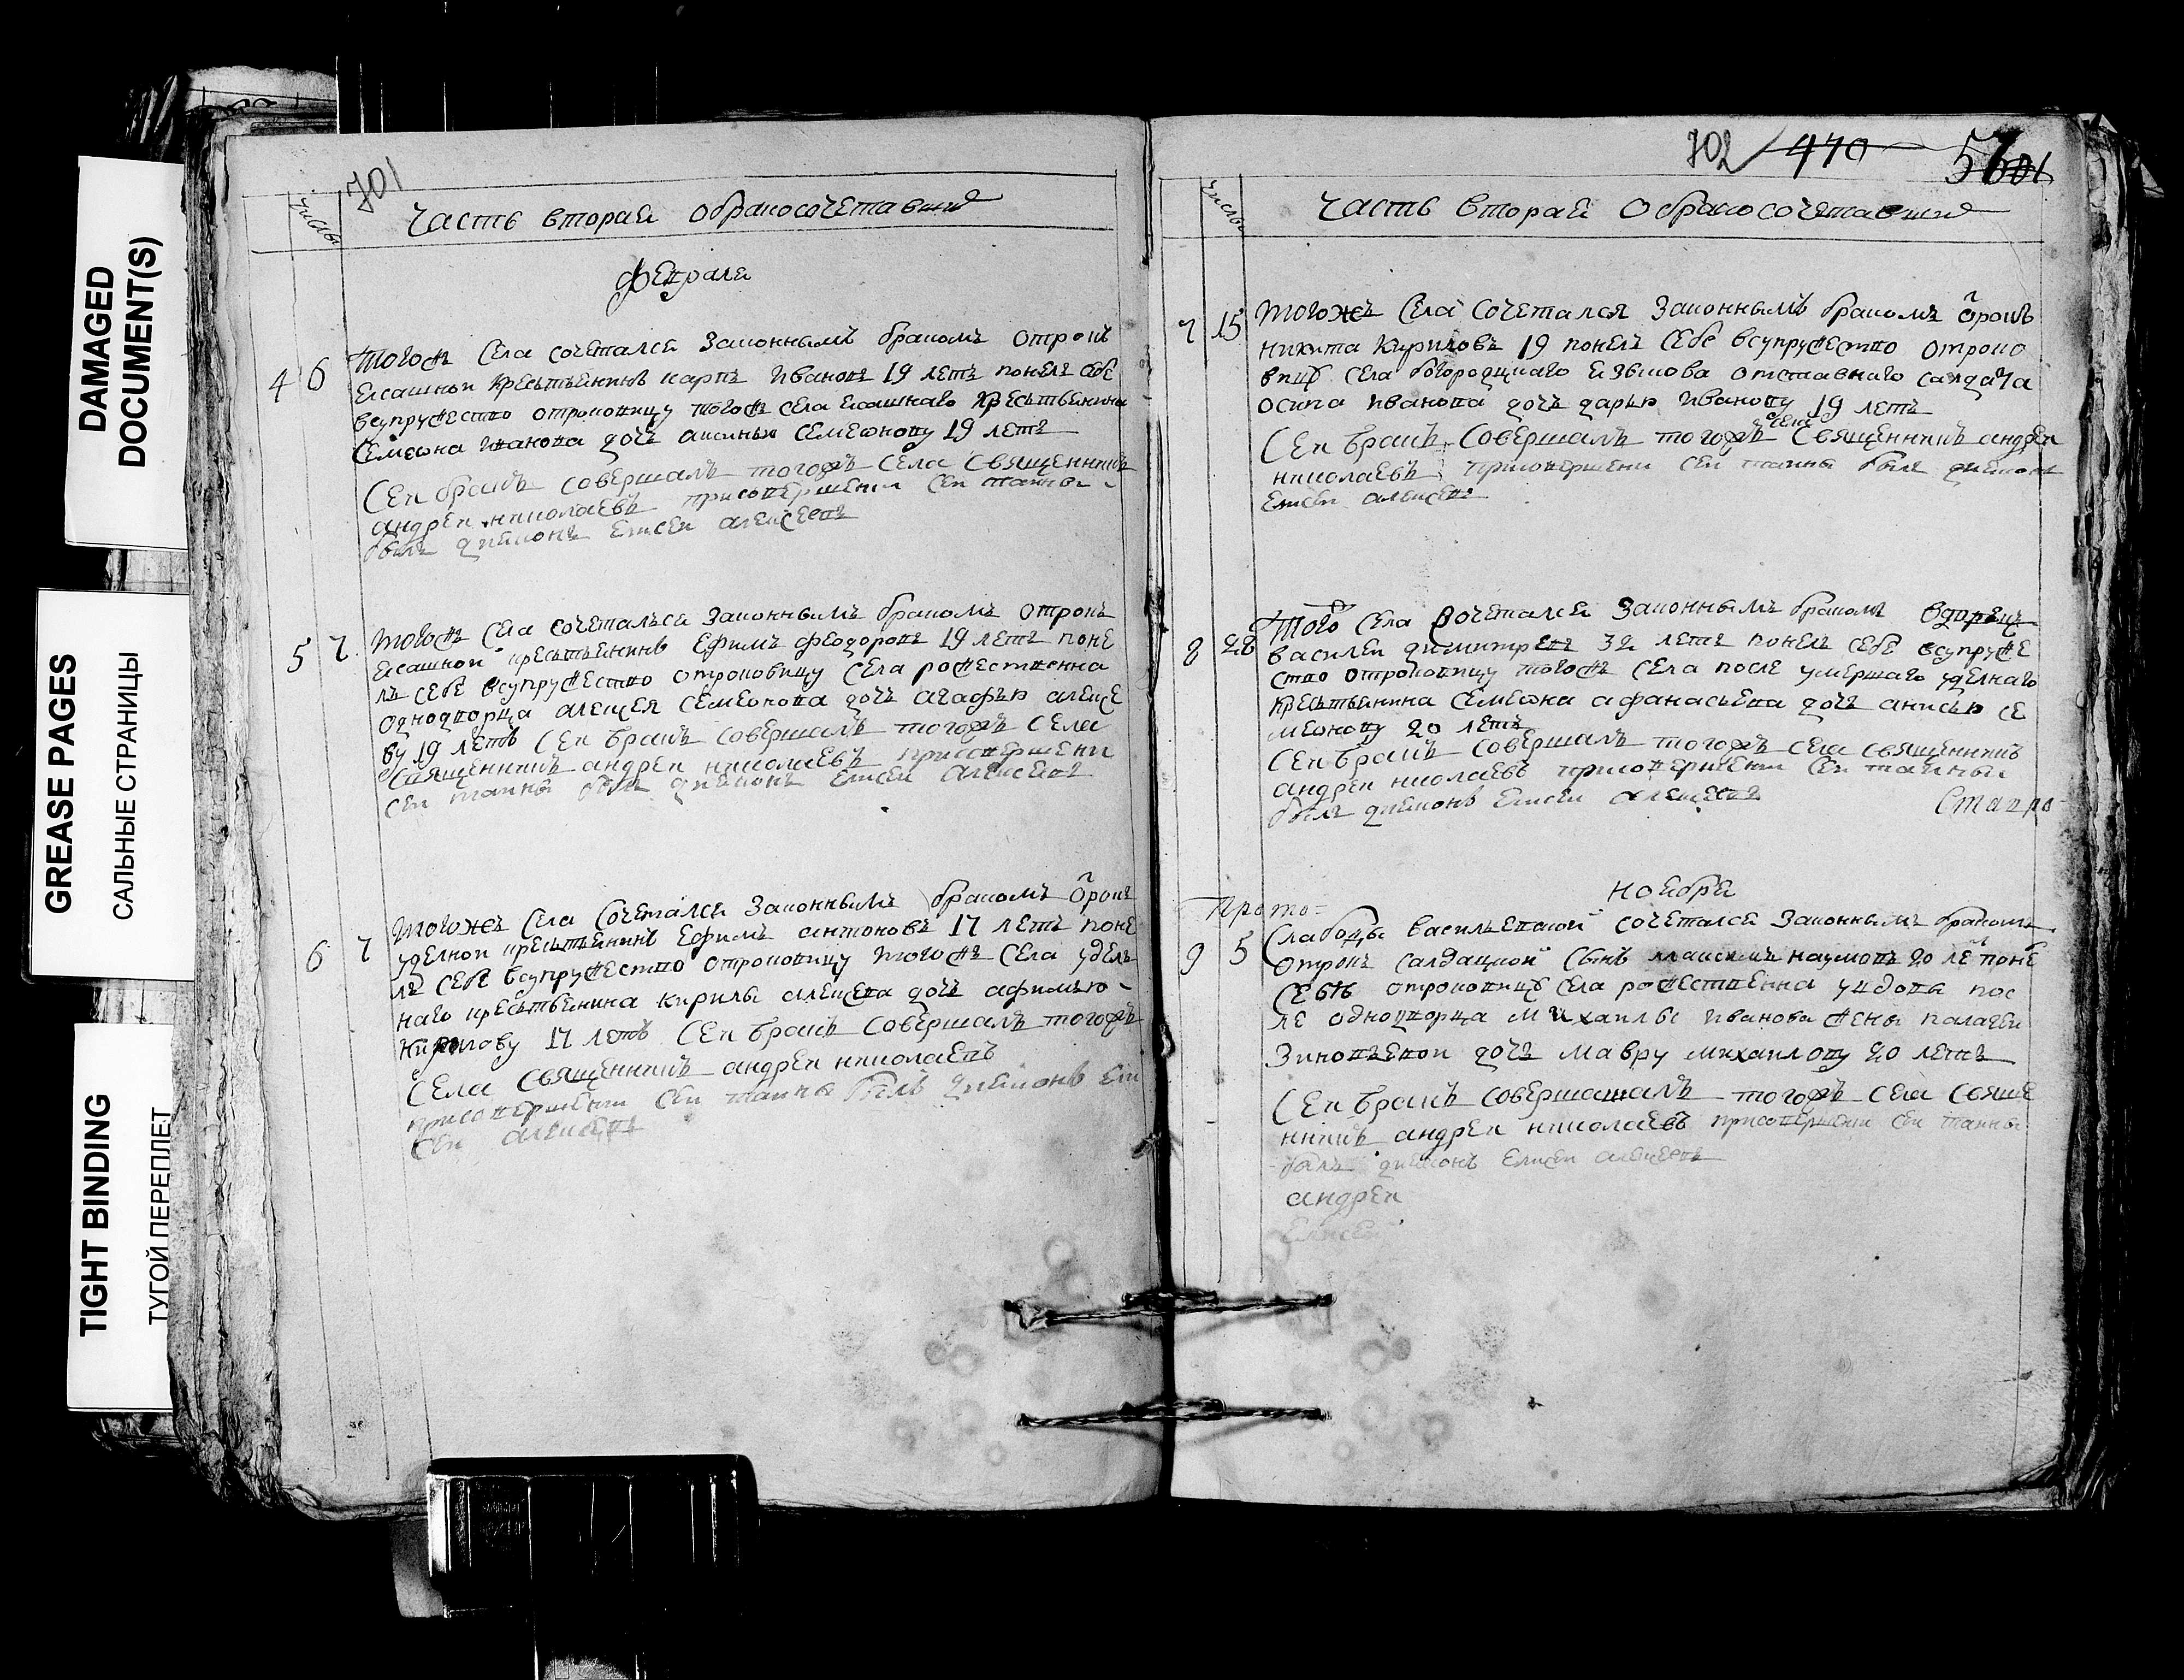 DAMAGED
DOCUMENT(S)
GREASE PAGES
САЛЬНЫЕ СТРАНИЦЫ
TIGHT BINDING
ТУГОЙ ПЕРЕПЛЕТ
701
числы
часть вторая обракосочетавши
февраля
4 6
тогож села сочетался законнымъ бракомъ отрокъ
ясашной крестьянинъ карпъ ивановъ 19 летъ понелъ себе
всупружество отроковицу тогож села ясашнаго крестьянина
семиона иванова дочь аксинью семионову 19 летъ
Сеи бракъ совершалъ тогожъ села священникъ
андреи николаевъ присовершени сеи таины
былъ дияконъ елисеи алексеевъ
5 7
тогож села сочеталься законнымъ бракомъ отрокъ
ясашной крестьянинъ ефимъ феодоровъ 19 летъ поне
лъ себе всупружество отроковицу села рожествена
однодворца алексея семионова дочь агафью алексе
ву 19 летъ Сеи бракъ совершалъ тогожъ села
священникъ андреи николаевъ присовершени
сеи таины былъ дияконъ елисеи алексеевъ
6 7
тогоже села сочетался законнымъ бракомъ отрокъ
уделнои крестьянинъ ефимъ антоновъ 17 летъ поне
лъ себе всупружество отроковицу тогож села удель
наго крестьянина кирилы алексева дочь афимью
кирилову 17 летъ Сеи бракъ совершалъ тогожъ
села священникъ андреи николаевъ
присовершени сеи таины былъ дияконъ ели
сеи алексевъ
702 470 57 601
числы
часть вторая обракосочетавши
7 15
тогоже села сочетался законнымъ бракомъ отрокъ
никита кириловъ 19 понелъ себе всупружество отроко
вицу села богородцкаго отставнаго салдата
осипа иванова дочь дарью иванову 19 летъ
села
Сеи бракъ совершалъ тогожъ священникъ андреи
николаевъ присовершени сеи таины былъ дияконъ
елисеи алексевъ
8 28
того села сочетался законнымъ бракомъ вдовецъ
василеи димитревъ 32 летъ понелъ себе всупруже
ство отроковицу тогожъ села после умершаго уделнаго
крестьянина семиона афанасьева дочь анисью се
мионову 20 летъ
Сеи бракъ совершалъ тогожъ села священникъ
андреи николаевъ присовершени сеи таины
былъ дияконъ елисеи алексеевъ
ноября
9 5
слабоды васильевскои сочетался законнымъ бракомъ
отрокъ салдацкои сынъ максимъ наумовъ 20 ле поне
себъ отроковицу села рожествена удова пос
ле однодворца михаилы иванова жены палагеи
зиновьевои дочь мавру михаилову 20 летъ
Сеи бракъ совершашалъ тогожъ села свяще
нникъ андреи николаевъ присовершени сеи таины
былъ дияконъ елисеи алексеевъ
андреи
елисеи